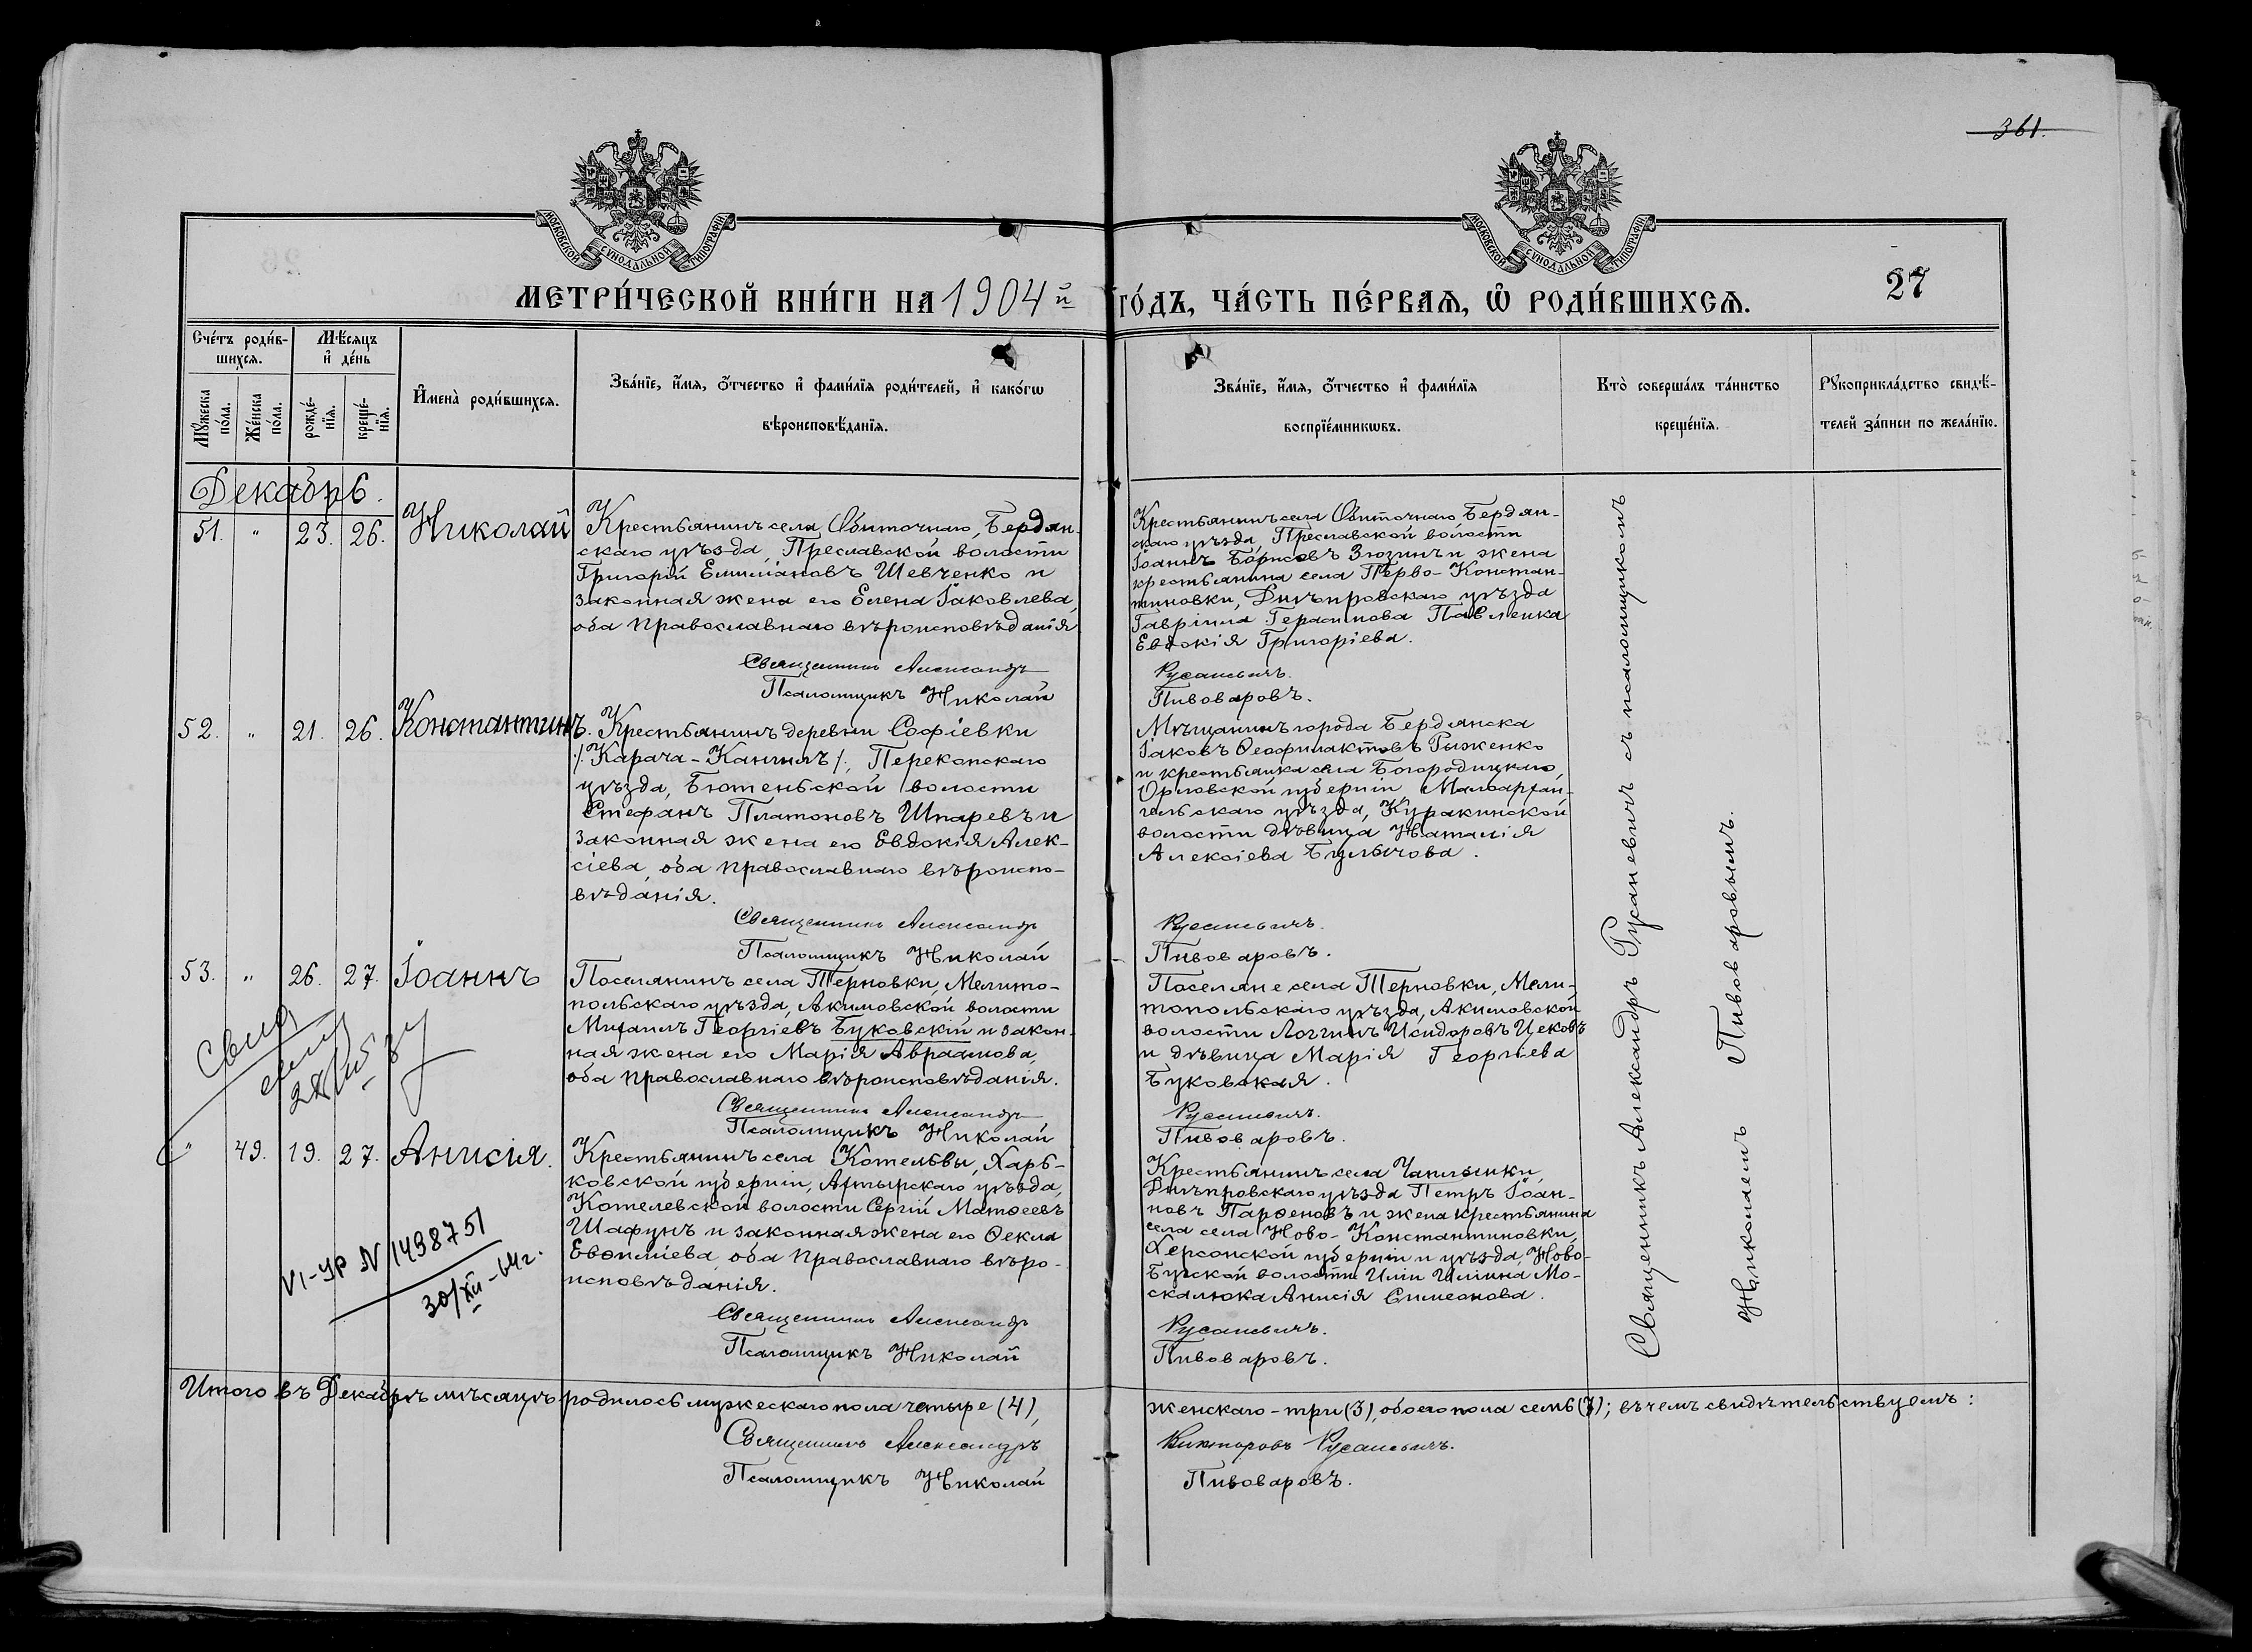 361.
МОСКОВСКОЙ СѴНОДАЛЬНОЙ ТИПОГРАФІИ
МОСКОВСКОЙ СѴНОДАЛЬНОЙ ТИПОГРАФІИ
27
МЕТРИ́ЧЕСКОЙ КНИ́ГИ НА 1904 й
ГО́ДЪ, ЧА́СТЬ ПЕ́РВАѦ, Ѡ҆ РОДИ́ВШИХСѦ.
Сче́тъ роди́в-
шихсѧ.
Мѣ́сѧцъ
и҆ де́нь
Мꙋ́жеска
по́ла.
Же́нска
по́ла.
рожде́-
нїѧ.
креще́-
нїѧ.
И҆мена̀ роди́вшихсѧ.
Зва́нїе, и҆́мѧ, ѻ҆́тчество и҆ фами́лїѧ роди́телей, и҆ како́гѡ
вѣроисповѣ́данїѧ.
Зва́нїе, и҆́мѧ, ѻ҆́тчество и҆ фами́лїѧ
воспрїе́мникѡвъ.
Кто̀ соверша́лъ та́инство
креще́нїѧ.
Рꙋкоприкла́дство свидѣ́-
телей за́писи по жела́нїю.
Декабрь.
51. " 23. 26. Николай
Крестьянинъ села Обиточнаго, Бердян-
скаго уѣзда, Преславской волости
Григорій Емиліановъ Шевченко и
законная жена его Елена Іаковлева,
оба православнаго вѣроисповѣданія
Священникъ Александръ
Псаломщикъ Николай
Крестьянинъ села Обиточнаго Бердян-
скаго уѣзда, Преславской волости
Іоаннъ Борисовъ Зюзинъ и жена
крестьянина села Перво-Констан-
тиновки, Днѣпровскаго уѣзда
Гавріила Герасимова Павленка
Евдокія Григоріева.
Русаневичъ.
Пивоваровъ.
52. " 21. 26. Константинъ.
Крестьянинъ деревни Софіевки
/:Карача-Кангилъ:/, Перекопскаго
уѣзда, Бютеньской волости
Стефанъ Платоновъ Шпаревъ и
законная жена его Евдокія Алек-
сіева, оба православнаго вѣроиспо-
вѣданія.
Священникъ Александръ
Псаломщикъ Николай
Мѣщанинъ города Бердянска
Іаковъ Ѳеофилактовъ Рыженко
и крестьянка села Богородицкаго,
Орловской губерніи Малоархан-
гельскаго уѣзда, Куракинской
волости дѣвица Наталія
Алексіева Булычова.
Русаневичъ.
Пивоваровъ.
53. " 26. 27. Іоаннъ
Поселянинъ села Терновки, Мелито-
польскаго уѣзда, Акимовской волости
Михаилъ Георгіевъ Буковскій и закон-
ная жена его Марія Авраамова,
оба православнаго вѣроисповѣданія.
Священникъ Александръ
Псаломщикъ Николай
Поселяне села Терновки, Мели-
топольскаго уѣзда, Акимовской
волости Логгинъ Исидоровъ Цековъ
и дѣвица Марія Георгіева
Буковская.
Русаневичъ.
Пивоваровъ.
" 49. 19. 27. Анисія.
Крестьянинъ села Котельвы, Харь-
ковской губерніи, Ахтырскаго уѣзда,
Котелевской волости Сергій Матѳеевъ
Шафунъ и законная жена его Ѳекла
Евѳиміева, оба православнаго вѣро-
исповѣданія.
Священникъ Александръ
Псаломщикъ Николай
Крестьянинъ села Чаплынки,
Днѣпровскаго уѣзда Петръ Іоан-
новъ Парѳеновъ и жена крестьянина
села села Ново-Константиновки,
Херсонской губерніи и уѣзда, Ново-
Бугской волости Иліи Иліина Мо-
скалюка Анисія Симеонова.
Русаневичъ.
Пивоваровъ.
VI-УР N 1498751
30/XII-64 г.
Священникъ Александръ Русаневичъ съ псаломщикомъ
Николаемъ Пивоваровымъ.
Итого въ Декабрѣ мѣсяцѣ родилось мужескаго пола четыре (4),
женскаго - три (3), обоего пола семь (7); въ чемъ свидѣтельствуемъ:
Священникъ Александръ
Викторовъ Русаневичъ.
Псаломщикъ Николай
Пивоваровъ.